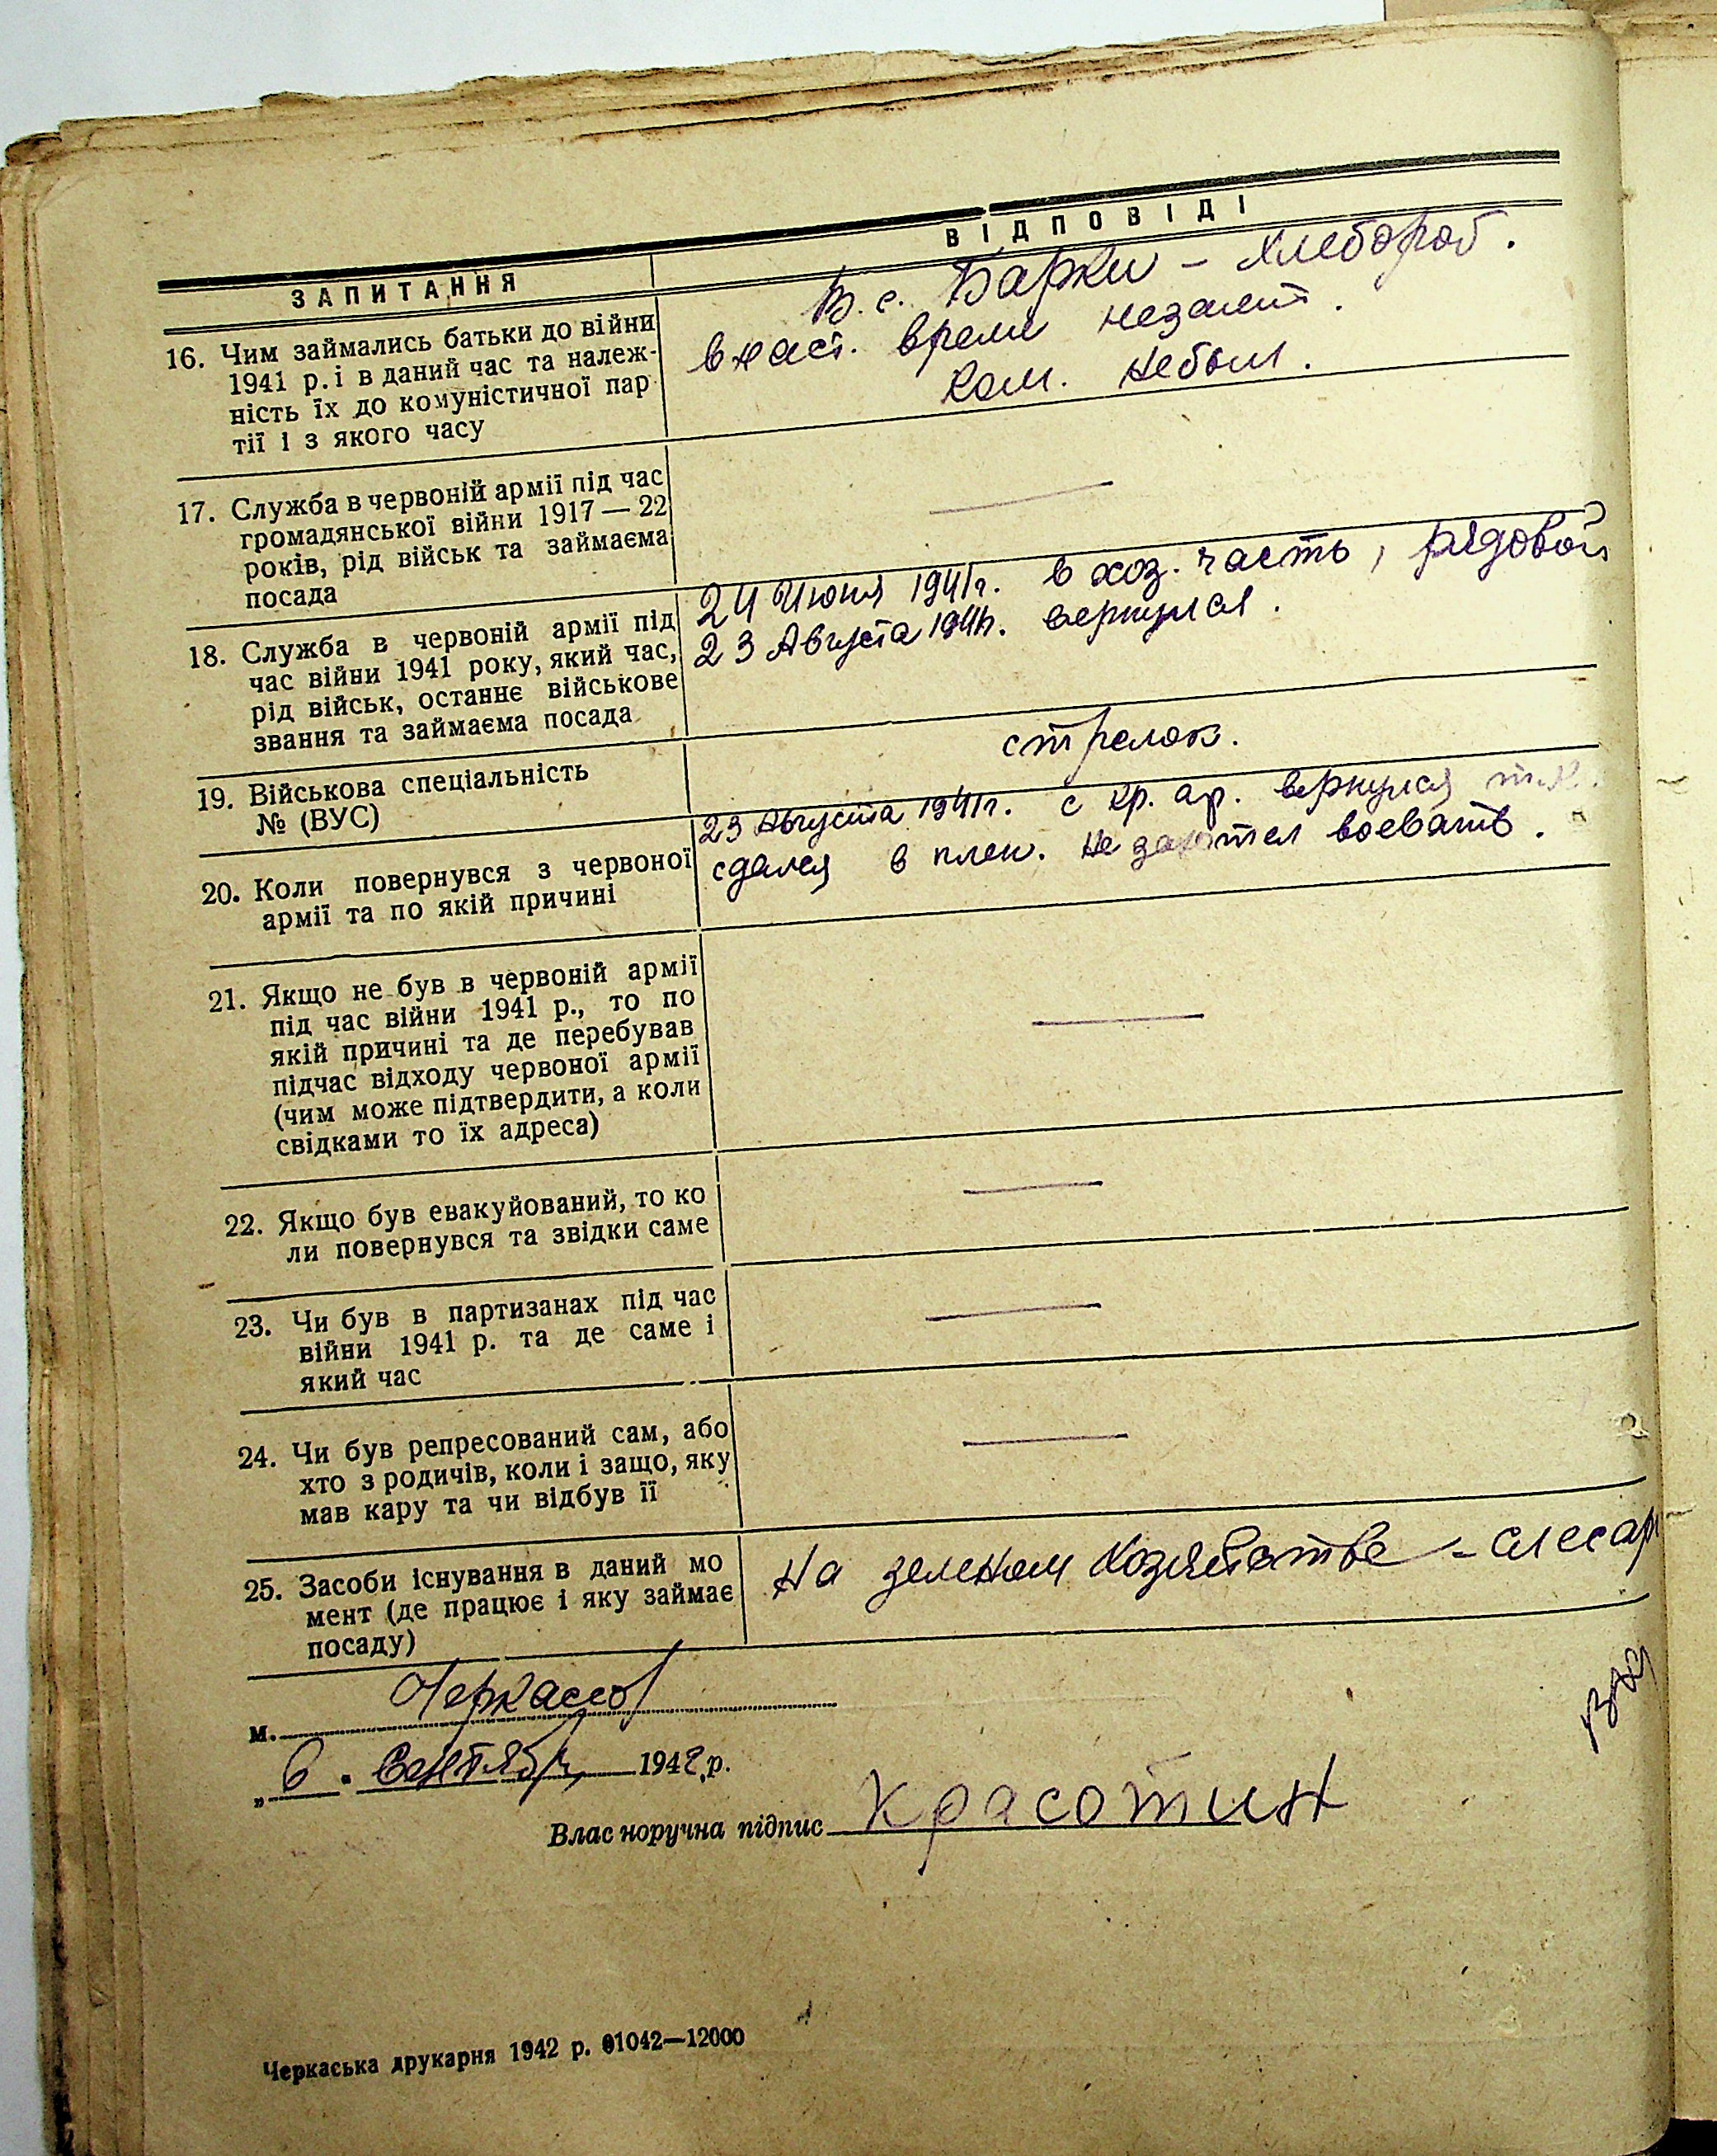 ЗАПИТАННЯ
ВІДПОВІДІ
16. Чим займались батьки до війни
1941 р. і в даний час та належ-
ність їх до комуністичної пар
тії і з якого часу
В. с. Барки - хлебороб.
в наст. время незанят.
Ком. небыл.
17. Служба в червоній армії під час
громадянської війни 1917—22
років, рід військ та займаєма
посада
—
18. Служба в червоній армії під
час війни 1941 року, який час,
рід військ, останнє військове
звання та займаєма посада
24 Июня 1941г. в хоз. часть, рядовой
23 Августа 1941г. вернулся.
19. Військова спеціальність
№ (ВУС)
стрелок.
20. Коли повернувся з червоної
армії та по якій причині
23 Августа 1941г. с кр. ар. вернулся т.к.
сдался в плен. Не захотел воевать.
21. Якщо не був в червоній армії
під час війни 1941 р., то по
якій причині та де перебував
підчас відходу червоної армії
(чим може підтвердити, а коли
свідками то їх адреса)
—
22. Якщо був евакуйований, то ко
ли повернувся та звідки саме
—
23. Чи був в партизанах під час
війни 1941 р. та де саме і
який час
—
24. Чи був репресований сам, або
хто з родичів, коли і защо, яку
мав кару та чи відбув її
—
25. Засоби існування в даний мо
мент (де працює і яку займає
посаду)
На зеленом Хозяйстве - слесар
м. Черкассы
„ 6 . Сентябр 1942 р.
Власноручна підпис Красотин
Черкаська друкарня 1942 р. 01042—12000